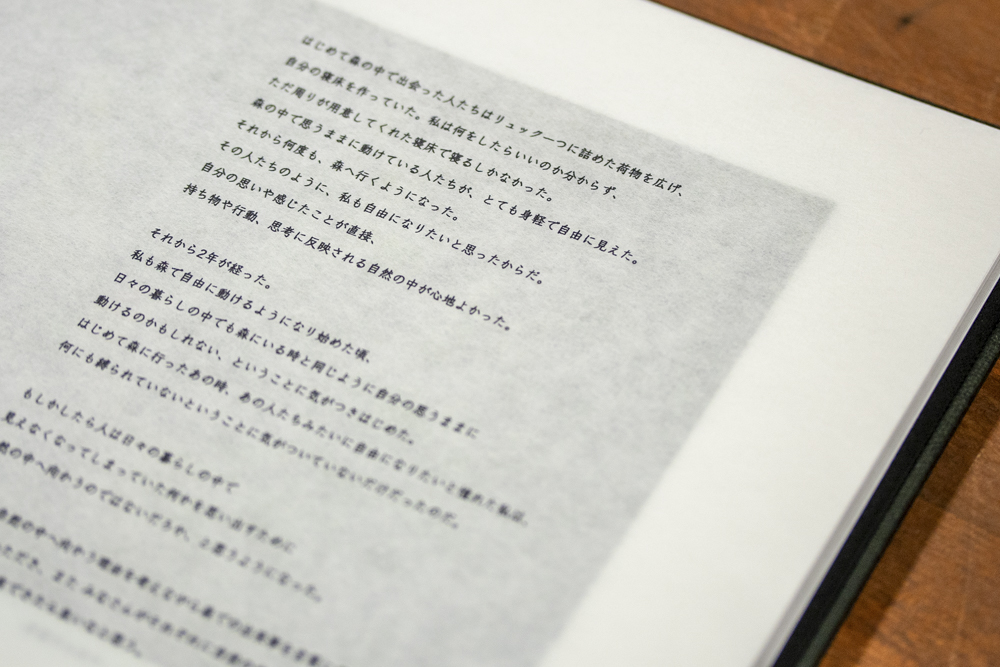 はじめて森の中で出会った人たちはリュック一つに詰めた荷物を広げ、
自分の寝床を作っていた。私は何をしたらいいのか分からず、
ただ周りが用意してくれた寝床で寝るしかなかった。
森の中で思うままに動けている人たちが、とても身軽で自由に見えた。
それから何度も、森へ行くようになった。
その人たちのように、私も自由になりたいと思ったからだ。
自分の思いや感じたことが直接、
持ち物や行動、思考に反映される自然の中が心地よかった。
それから2年が経った。
私も森で自由に動けるようになり始めた頃、
日々の暮らしの中でも森にいる時と同じように自分の思うままに
動けるのかもしれない、ということに気がつきはじめた。
はじめて森に行ったあの時、あの人たちみたいに自由になりたいと憧れた私は、
何にも縛られていないということに気がついていないだけだったのだ。
もしかしたら人は日々の暮らしの中で
見えなくなってしまっていた何かを思い出すために
然の中へ向かうのではないだろうか、と思うようになった。